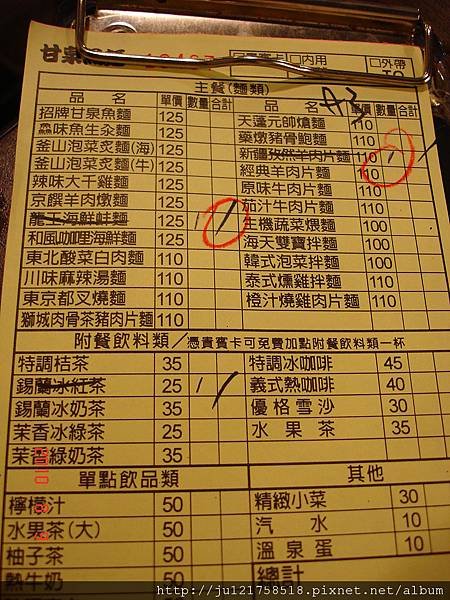 甘泉
外帶
內用
A3
主餐(麵類)
品名 單價 數量 合計 品名 單價 數量 合計
招牌甘泉魚麵 125 天蓬元帥焢麵 110
魚味魚生灸麵 125 藥燉豬骨鮑麵 110
釜山泡菜炙麵(海) 125 新疆孜然羊肉片麵 110 1
釜山泡菜炙麵(牛) 125 經典羊肉片麵 110
辣味大千雞麵 125 原味牛肉片麵 110
京饌羊肉燉麵 125 茄汁牛肉片麵 110
龍王海鮮蚌麵 125 1 生機蔬菜煨麵 100
和風咖哩海鮮麵 125 海天雙寶拌麵 100
東北酸菜白肉麵 110 韓式泡菜拌麵 100
川味麻辣湯麵 110 泰式燻雞拌麵 110
東京都叉燒麵 110 橙汁燒雞肉片麵 110
獅城肉骨茶豬肉片麵 110
附餐飲料類/憑貴賓卡可免費加點附餐飲料類一杯
特調桔茶 35 特調冰咖啡 45
錫蘭冰紅茶 25 1 義式熱咖啡 40
錫蘭冰奶茶 35 優格雪沙 30
茉香冰綠茶 25 水果茶 35
茉香綠奶茶 35
單點飲品類 其他
檸檬汁 50 精緻小菜 30
水果茶(大) 50 汽水 10
柚子茶 50 溫泉蛋 10
熱牛奶 50 總計
http://ju121758518.pixnet.net/album